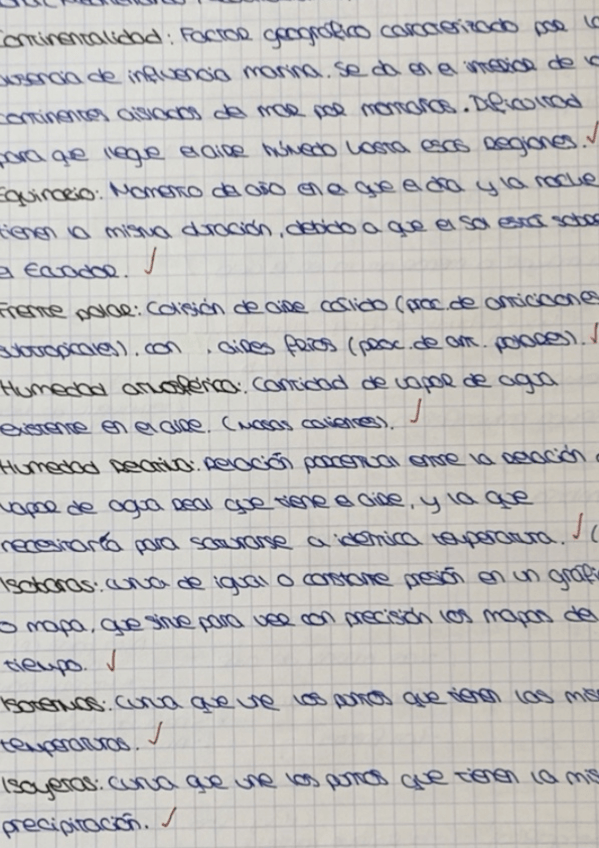 Continentalidad: Factor geográfico caracterizado por la
ausencia de influencia marina. Se da en el interior de los
continentes aislados de mar por montañas. Dificultad
para que llegue el aire húmedo hasta esas regiones. ✓
Equinoccio: Momento del año en el que el día y la noche
tienen la misma duración, debido a que el sol está sobre
el Ecuador. ✓
Frente polar: Colisión de aire cálido (proc. de anticiclones
subtropicales), con aires fríos (proc. de ant. polares). ✓
Humedad atmosférica: Cantidad de vapor de agua
existente en el aire. (Masas calientes). ✓
Humedad relativa: relación porcentual entre la relación
vapor de agua real que tiene el aire, y la que
necesitaría para saturarse a idéntica temperatura. ✓ (
Isobaras: curva de igual o constante presión en un grafi
o mapa, que sirve para ver con precisión los mapas del
tiempo. ✓
Isotermas: curva que une los puntos que tienen las mis
temperaturas. ✓
Isoyetas: curva que une los puntos que tienen la mis
precipitación. ✓